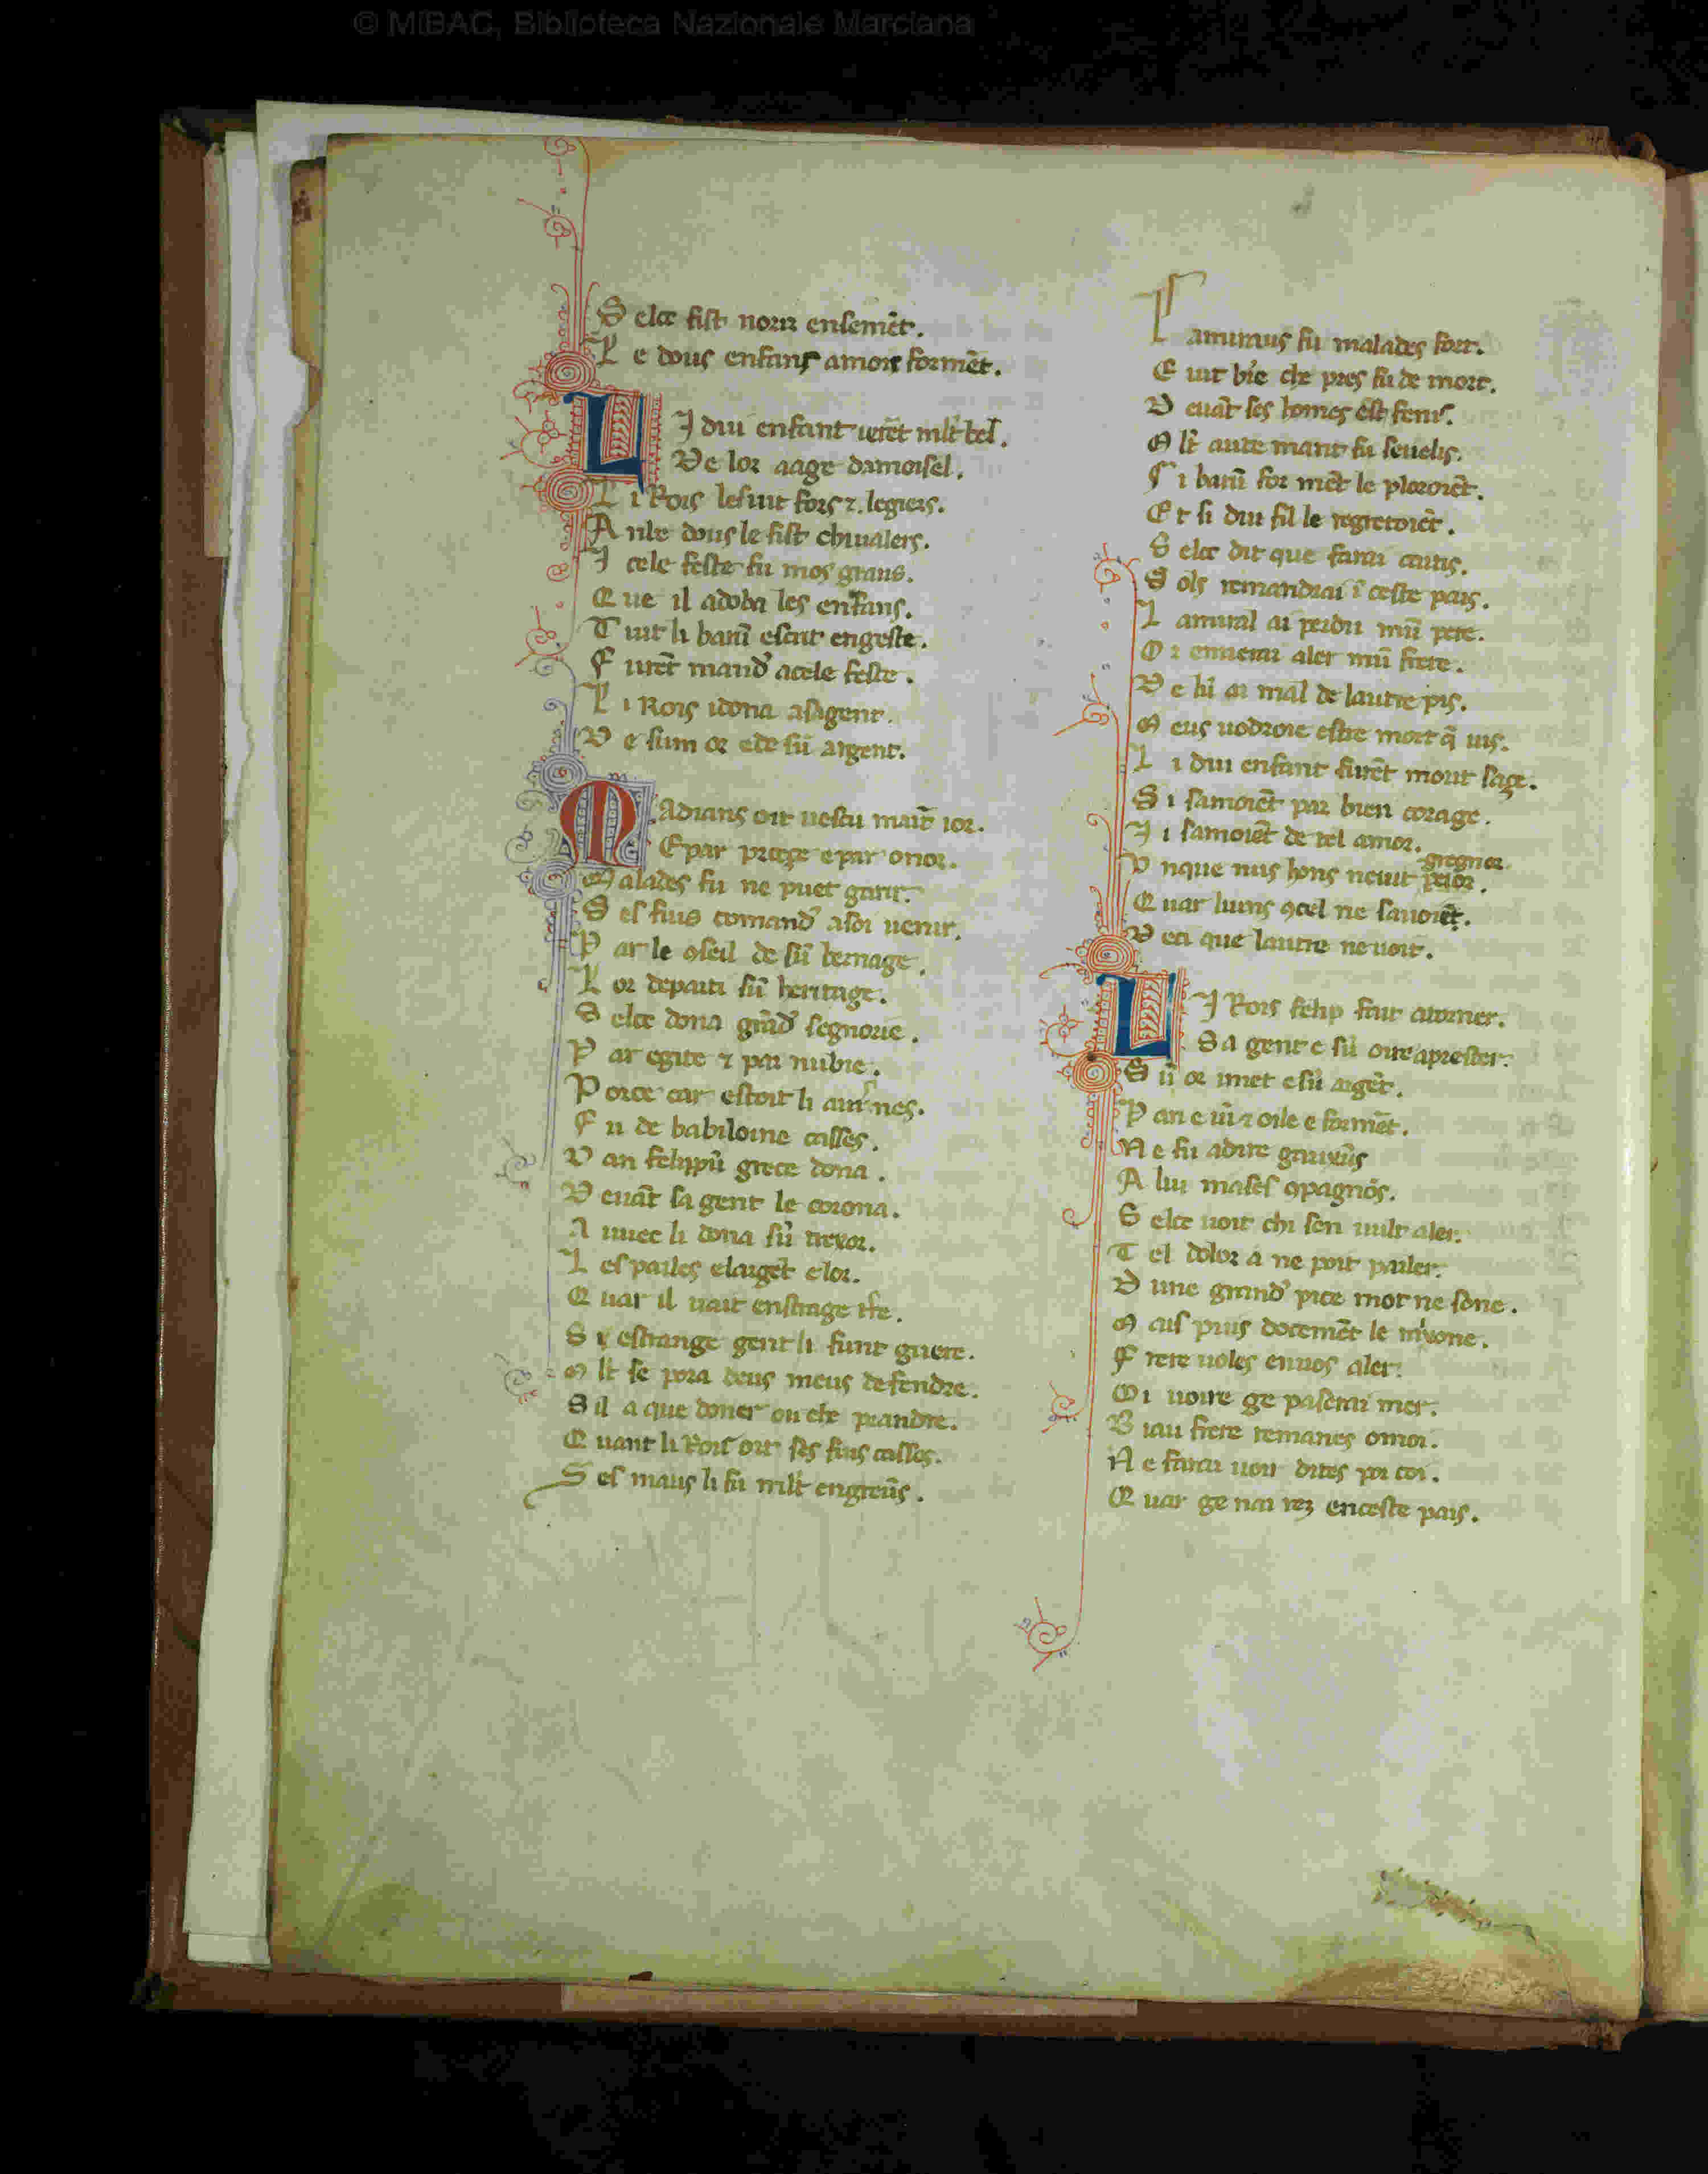 © MiBAC, Biblioteca Nazionale Marciana
S elce fist norir ensemēt.
L e dous enfanz amoit formēt.
LI dui enfant ierēt ml̄t bel.
De lor aage damoisel.
L i Rois les uit fors ⁊ legiers.
A nbe dous le fist chiualers.
I cele feste fu mos grans.
Q ue il adoba les enfans.
T uit li barū
F urēt mand̄ a cele feste.
L i Rois i dona a sa gent.
D e sum or e de sū argent.
MAdians oit uescu maīt ior.
E par e par onor.
M alades fu ne puet garir.
S es fius comand̄ a soi uenir.
P ar le ꝯseil de sū bernage.
L or departi sū heritage.
S elce dona grād̄ segnorie.
P ar egite ⁊ par nubie.
P orce car estoit li
F u de babiloine casses.
D an felippū grece dona.
D euāt sa gent le corona.
A uuec li dona sū trexor.
L es pailes e largēt e lor.
Q uar il uait
S i estrange gent li funt guere.
M lt̄ se pora deus meus defendre.
S il a que doner ou che prandre.
Q uant li Rois oit ses fius casses.
S es maus li fu ml̄t engreūs.
L amiraus fu malades fort.
E uit biē che pres fu de mort.
D euāt ses homes est fenis.
M lt̄ aute mant fu seuelis.
L i barū for mēt le ploroiēt.
E t si dui fil le regretoiēt.
S elce dit que farai caitis.
S ols remandrai ī ceste pais.
L amiral ai perdu mū pere.
O r enuerai aler mū frere.
D e lū ai mal de lautre pis.
M eus uodroie estre mort q̄ uis.
L i dui enfant furēt mout sage.
S i samoiēt par bien corage.
I i samoiēt de tel amor.
U nque nus hons ne uit gregnor peior.
Q uar luns ꝯcel ne sauoiēt.
D eci que lautre ne uoit.
LI Rois felip fait atorner.
Sa gent e sū oirre aprester.
S ū or i met e sū argēt.
P an e uī ⁊ oile e formēt.
N e fu a dire
A lui mases ꝯpagnōs.
S elce uoit chi sen uult aler.
T el dolor a ne poit parler.
D une grand̄ pice mot ne sone.
M ais puis docemēt le
F rere uoles enuos aler.
O i uoire ge paserai mer.
B iau frere remanes o moi.
N e farai uoir dites por coi.
Q uar ge nai rez en ceste pais.